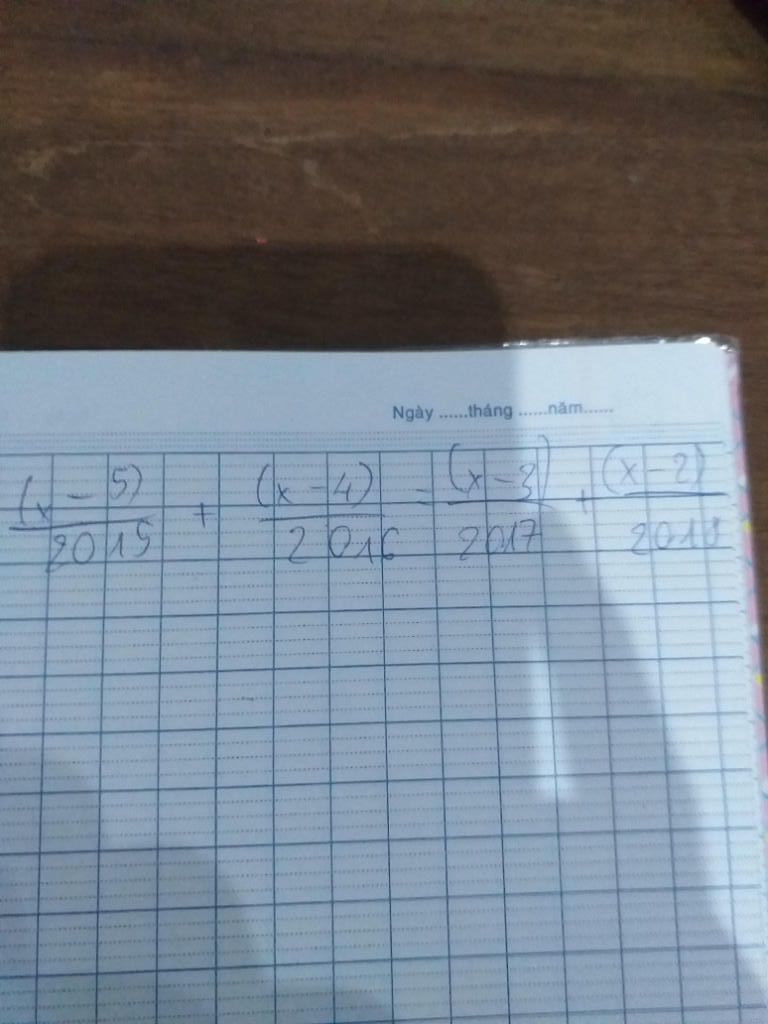 Ngày ......tháng ......năm......
(x - 5)/2015 + (x - 4)/2016 = (x - 3)/2017 + (x - 2)/2018